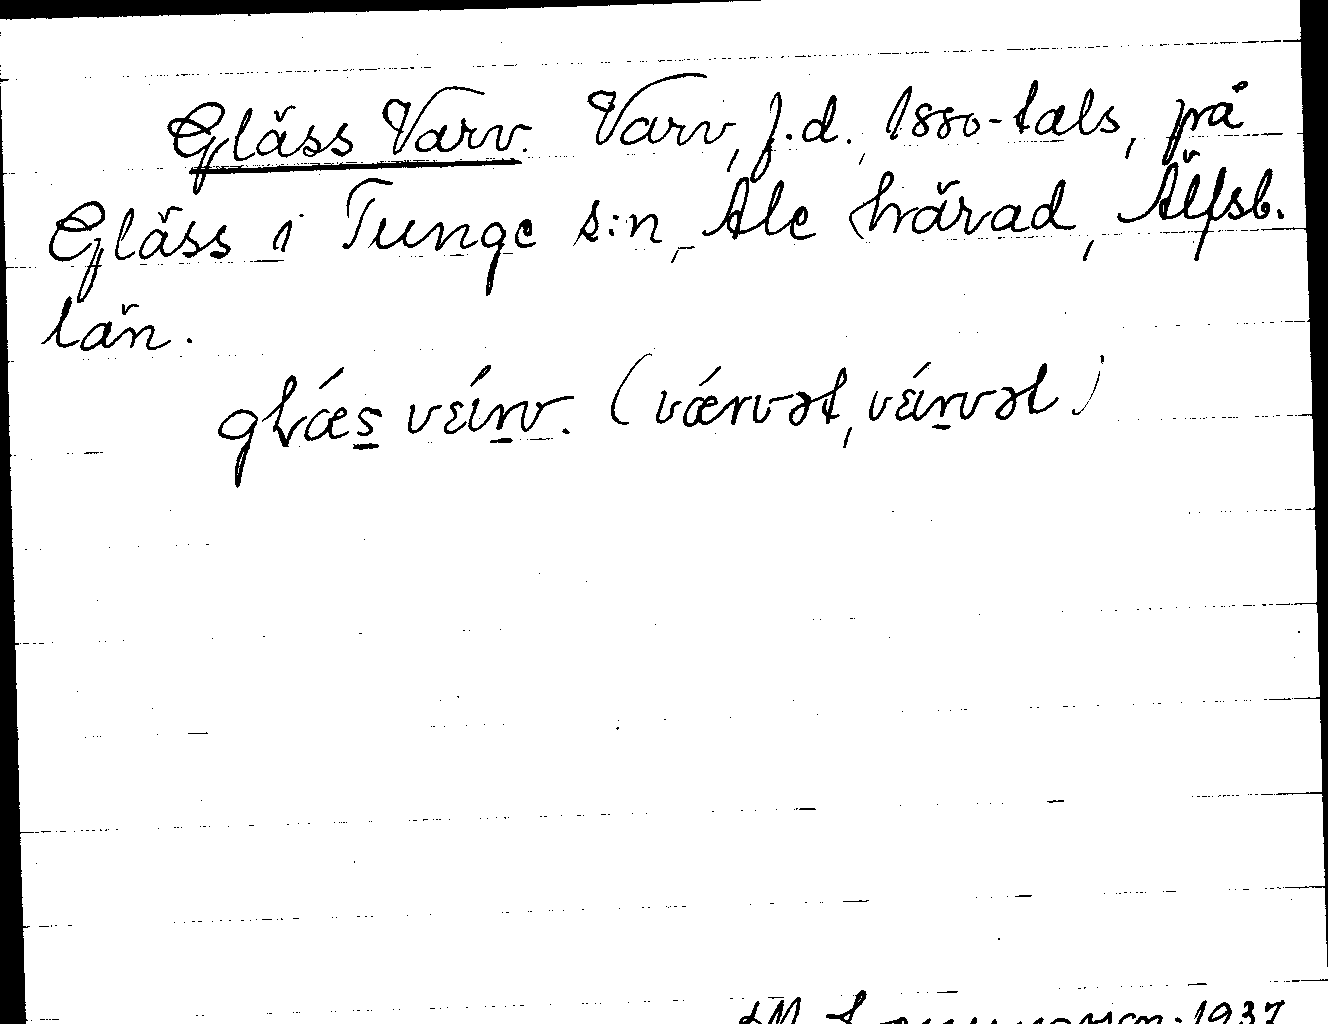 Gläss Varv. Varv, f.d., 1880-tals, på
Gläss i Tunge s:n, Ale härad, Älfsb.
län.
glǽs vέrv. (vǽrvət, vέrvət)
1937